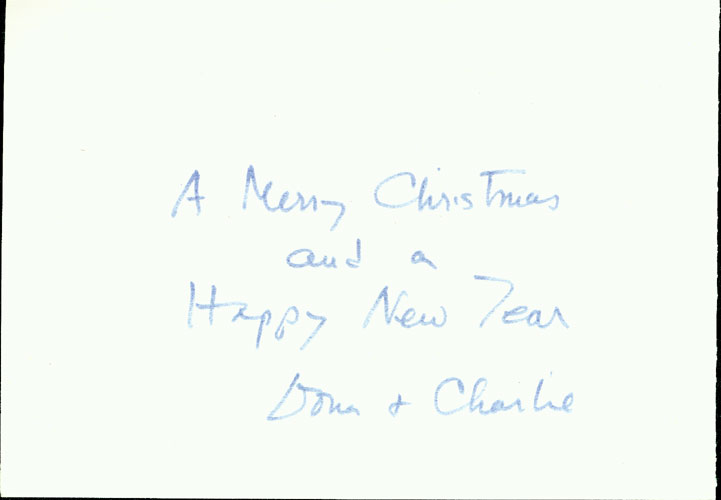 A Merry Christmas
and a
Happy New Year
Dona + Charlie